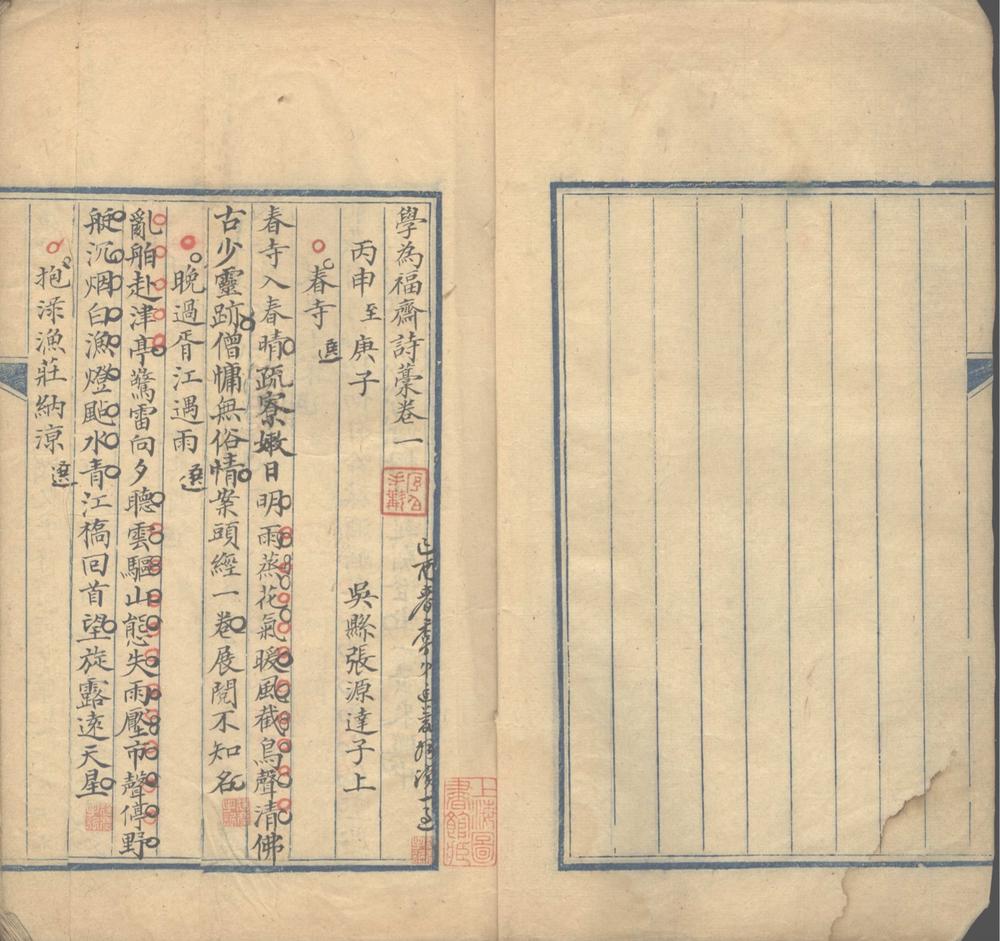 學為福齋詩藁卷一
丙申至庚子 吳縣張源達子上
春寺 選
春寺入春晴疏寮嫩日明雨蒸花氣暖風截鳥聲清佛
古少靈跡僧慵無俗情案頭經一卷展閱不知名
晚過胥江遇雨 選
亂舶赴津亭驚雷向夕聽雲驅山態失雨壓市聲停野
艇沉烟白漁燈颭水青江橋回首望旋露遠天星
抱淥漁莊納涼 選
上海圖書館藏